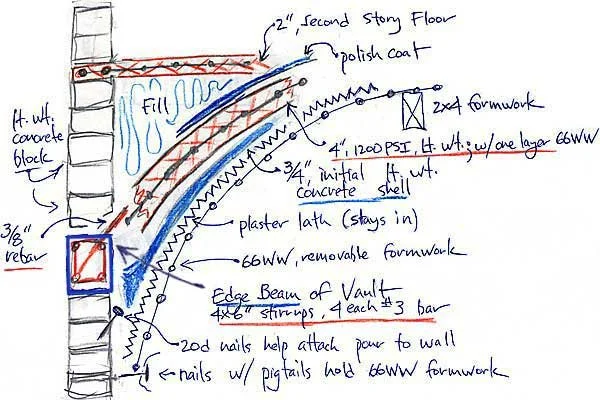 2", second story Floor
polish coat
Fill
lt. wt.
concrete
block
2x4 formwork
4", 1200 PSI, lt. wt.; w/one layer 66WW
3/4", initial lt. wt.
concrete shell
plaster lath (stays in)
3/8"
rebar
66WW, removable formwork
Edge Beam of Vault
4x6" stirrups, 4 each #3 bar
20d nails help attach pour to wall
nails w/ pigtails hold 66WW formwork